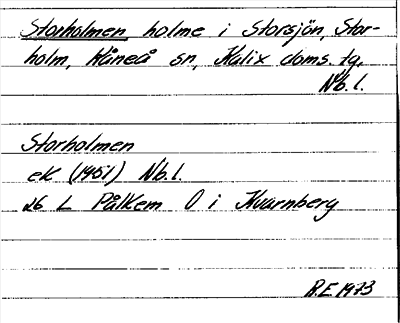 Storholmen, holme i Storsjön, Stor-
holm, Råneå sn, Kalix doms. tg,
Nb.l.
Storholmen
ek (1951) Nb.l.
26 L Pålkem O i Kvarnberg
R.E 1973